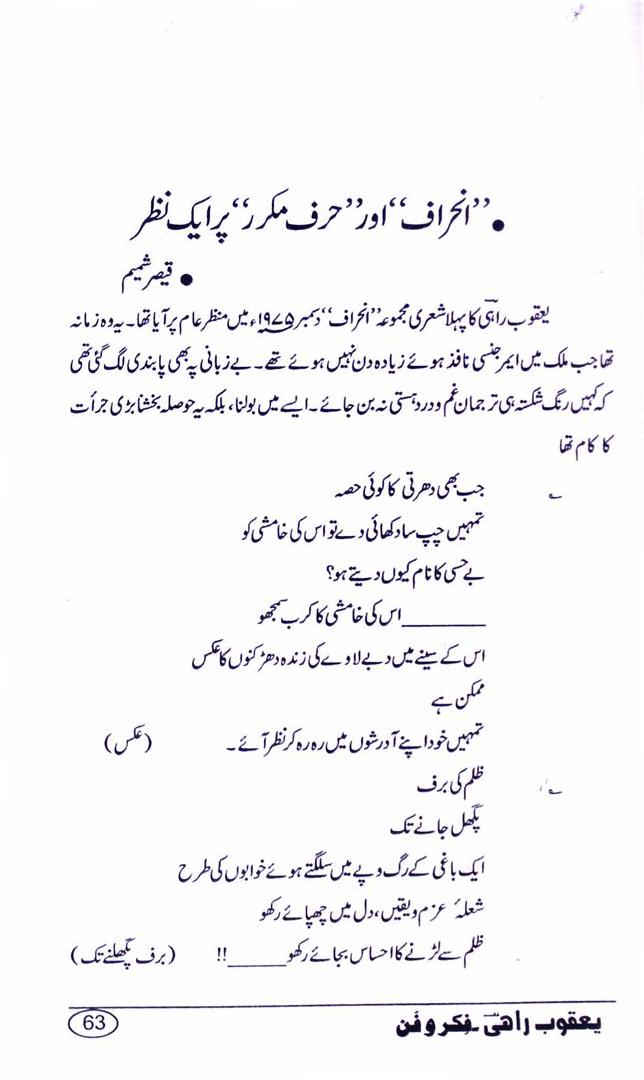 ● ’’انحراف‘‘ اور ’’حرف مکرر‘‘ پر ایک نظر
● قیصر شمیم
یعقوب راہیؔ کا پہلا شعری مجموعہ ’’انحراف‘‘ دسمبر ۱۹۷۵ء میں منظر عام پر آیا تھا۔ یہ وہ زمانہ
تھا جب ملک میں ایمرجنسی نافذ ہوئے زیادہ دن نہیں ہوئے تھے۔ بے زبانی پہ بھی پابندی لگ گئی تھی
کہ کہیں رنگ شکستہ ہی ترجمان غم و درد ہستی نہ بن جائے۔ ایسے میں بولنا، بلکہ یہ حوصلہ بخشنا بڑی جرأت
کا کام تھا
؎ جب بھی دھرتی کا کوئی حصہ
تمہیں چپ سا دکھائی دے تو اس کی خامشی کو
بے حسی کا نام کیوں دیتے ہو؟
______اس کی خامشی کا کرب سمجھو
اس کے سینے میں دبے لاوے کی زندہ دھڑکنوں کا عکس
ممکن ہے
تمہیں خود اپنے آدرشوں میں رہ رہ کر نظر آئے۔ (عکس)
؎ ظلم کی برف
پگھل جانے تک
ایک باغی کے رگ و پے میں سلگتے ہوئے خوابوں کی طرح
شعلۂ عزم و یقیں، دل میں چھپائے رکھو
ظلم سے لڑنے کا احساس بجائے رکھو______!! (برف پگھلنے تک)
یعقوب راھیؔ۔ فِکر و فَن
63